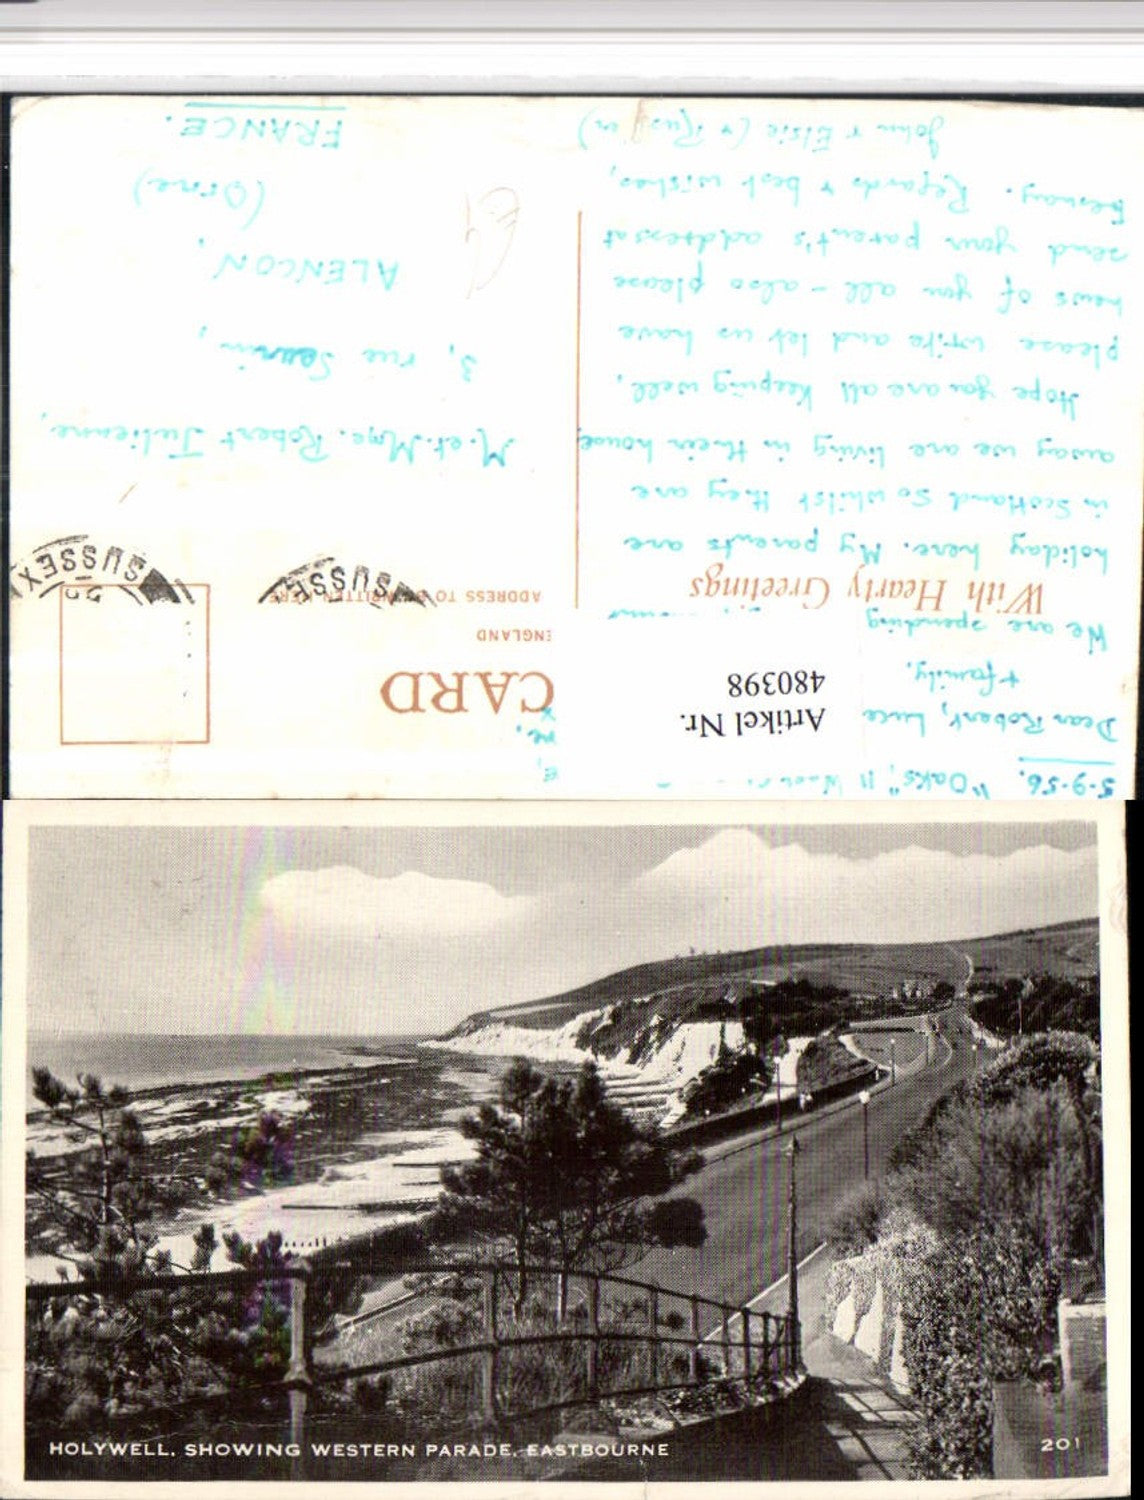 5-9-56. "Oaks", 11
Dear Robert, Luce
+ family,
We are spending
holiday here. My parents are
in Scotland so whilst they are
away we are living in their house.
Hope you are all keeping well,
please write and let us have
news of you all – also please
send your parent's address at
Regards & best wishes,
John & Elsie (&
With Hearty Greetings
Artikel Nr.
480398
CARD
ENGLAND
ADDRESS TO BE WRITTEN HERE
SUSSEX
SUSSEX
M. et. Mme. Robert Julienne,
3, rue
ALENCON,
(Orne)
FRANCE.
HOLYWELL, SHOWING WESTERN PARADE, EASTBOURNE
201